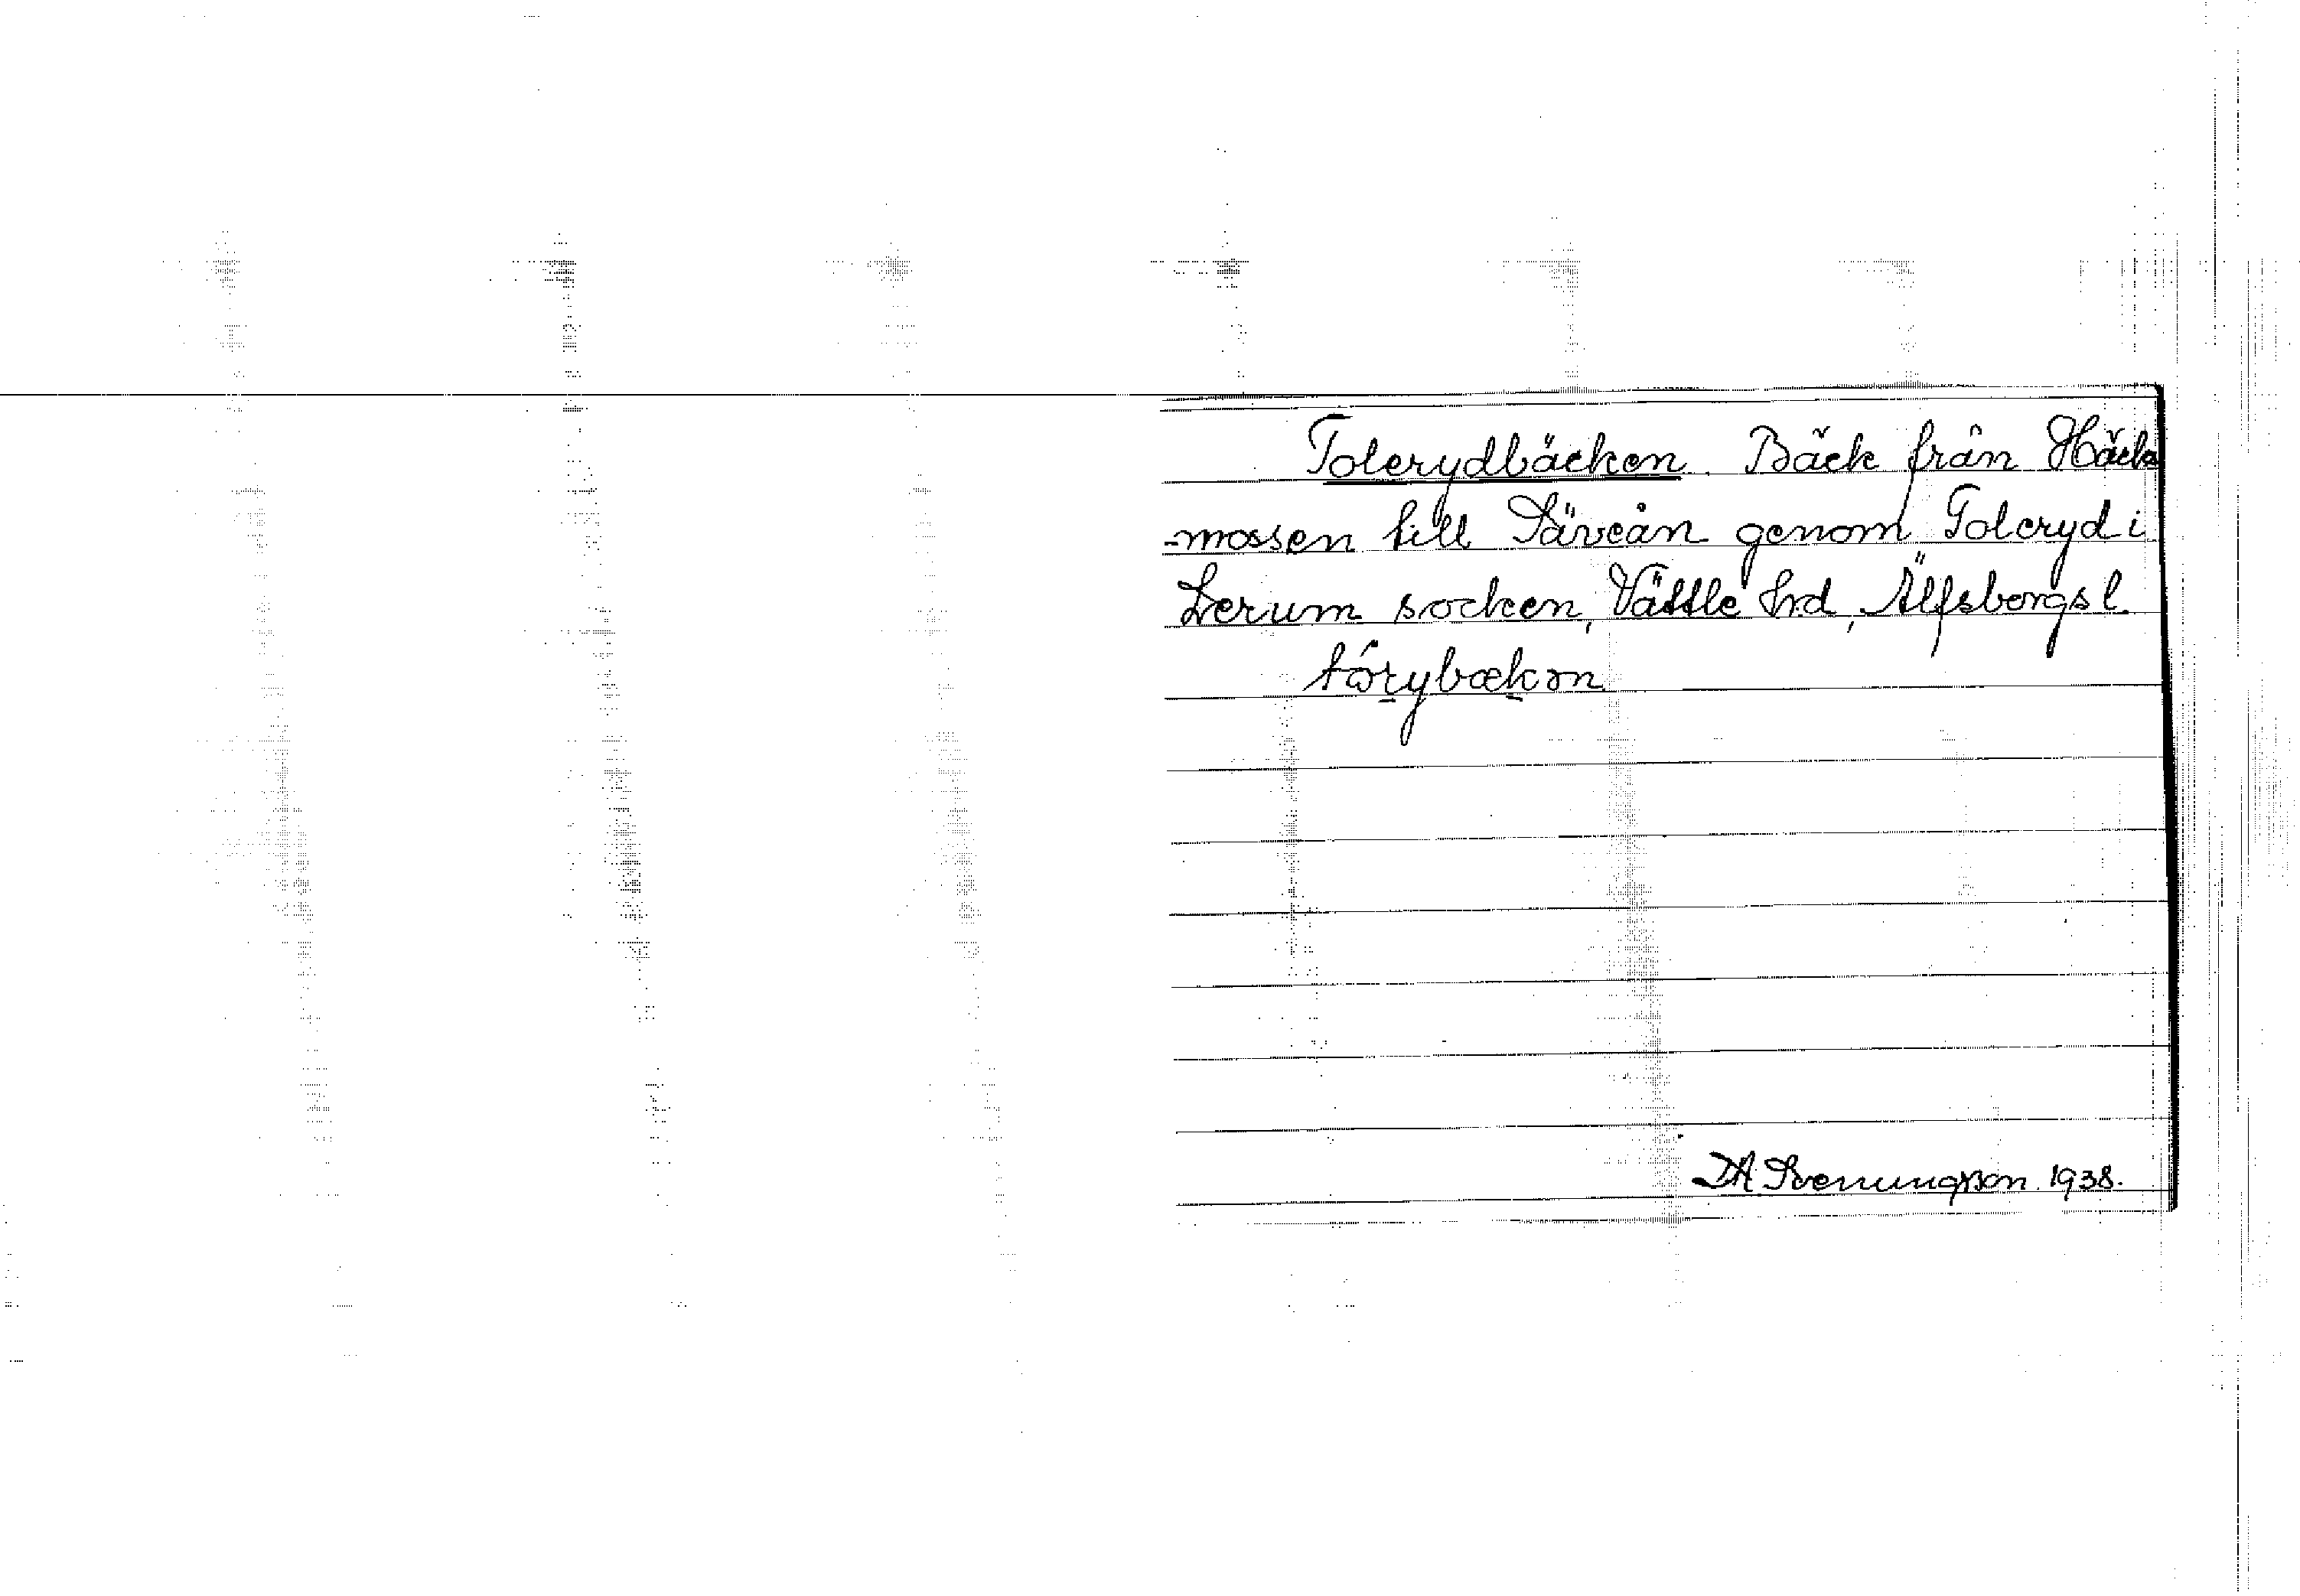 Tolerydbäcken. Bäck från Häck
-mossen till Säveån genom Toleryd i
Lerum socken, Vättle hrd, Älfsborgs l.
tórybækən
D.A. Svenungsson. 1938.